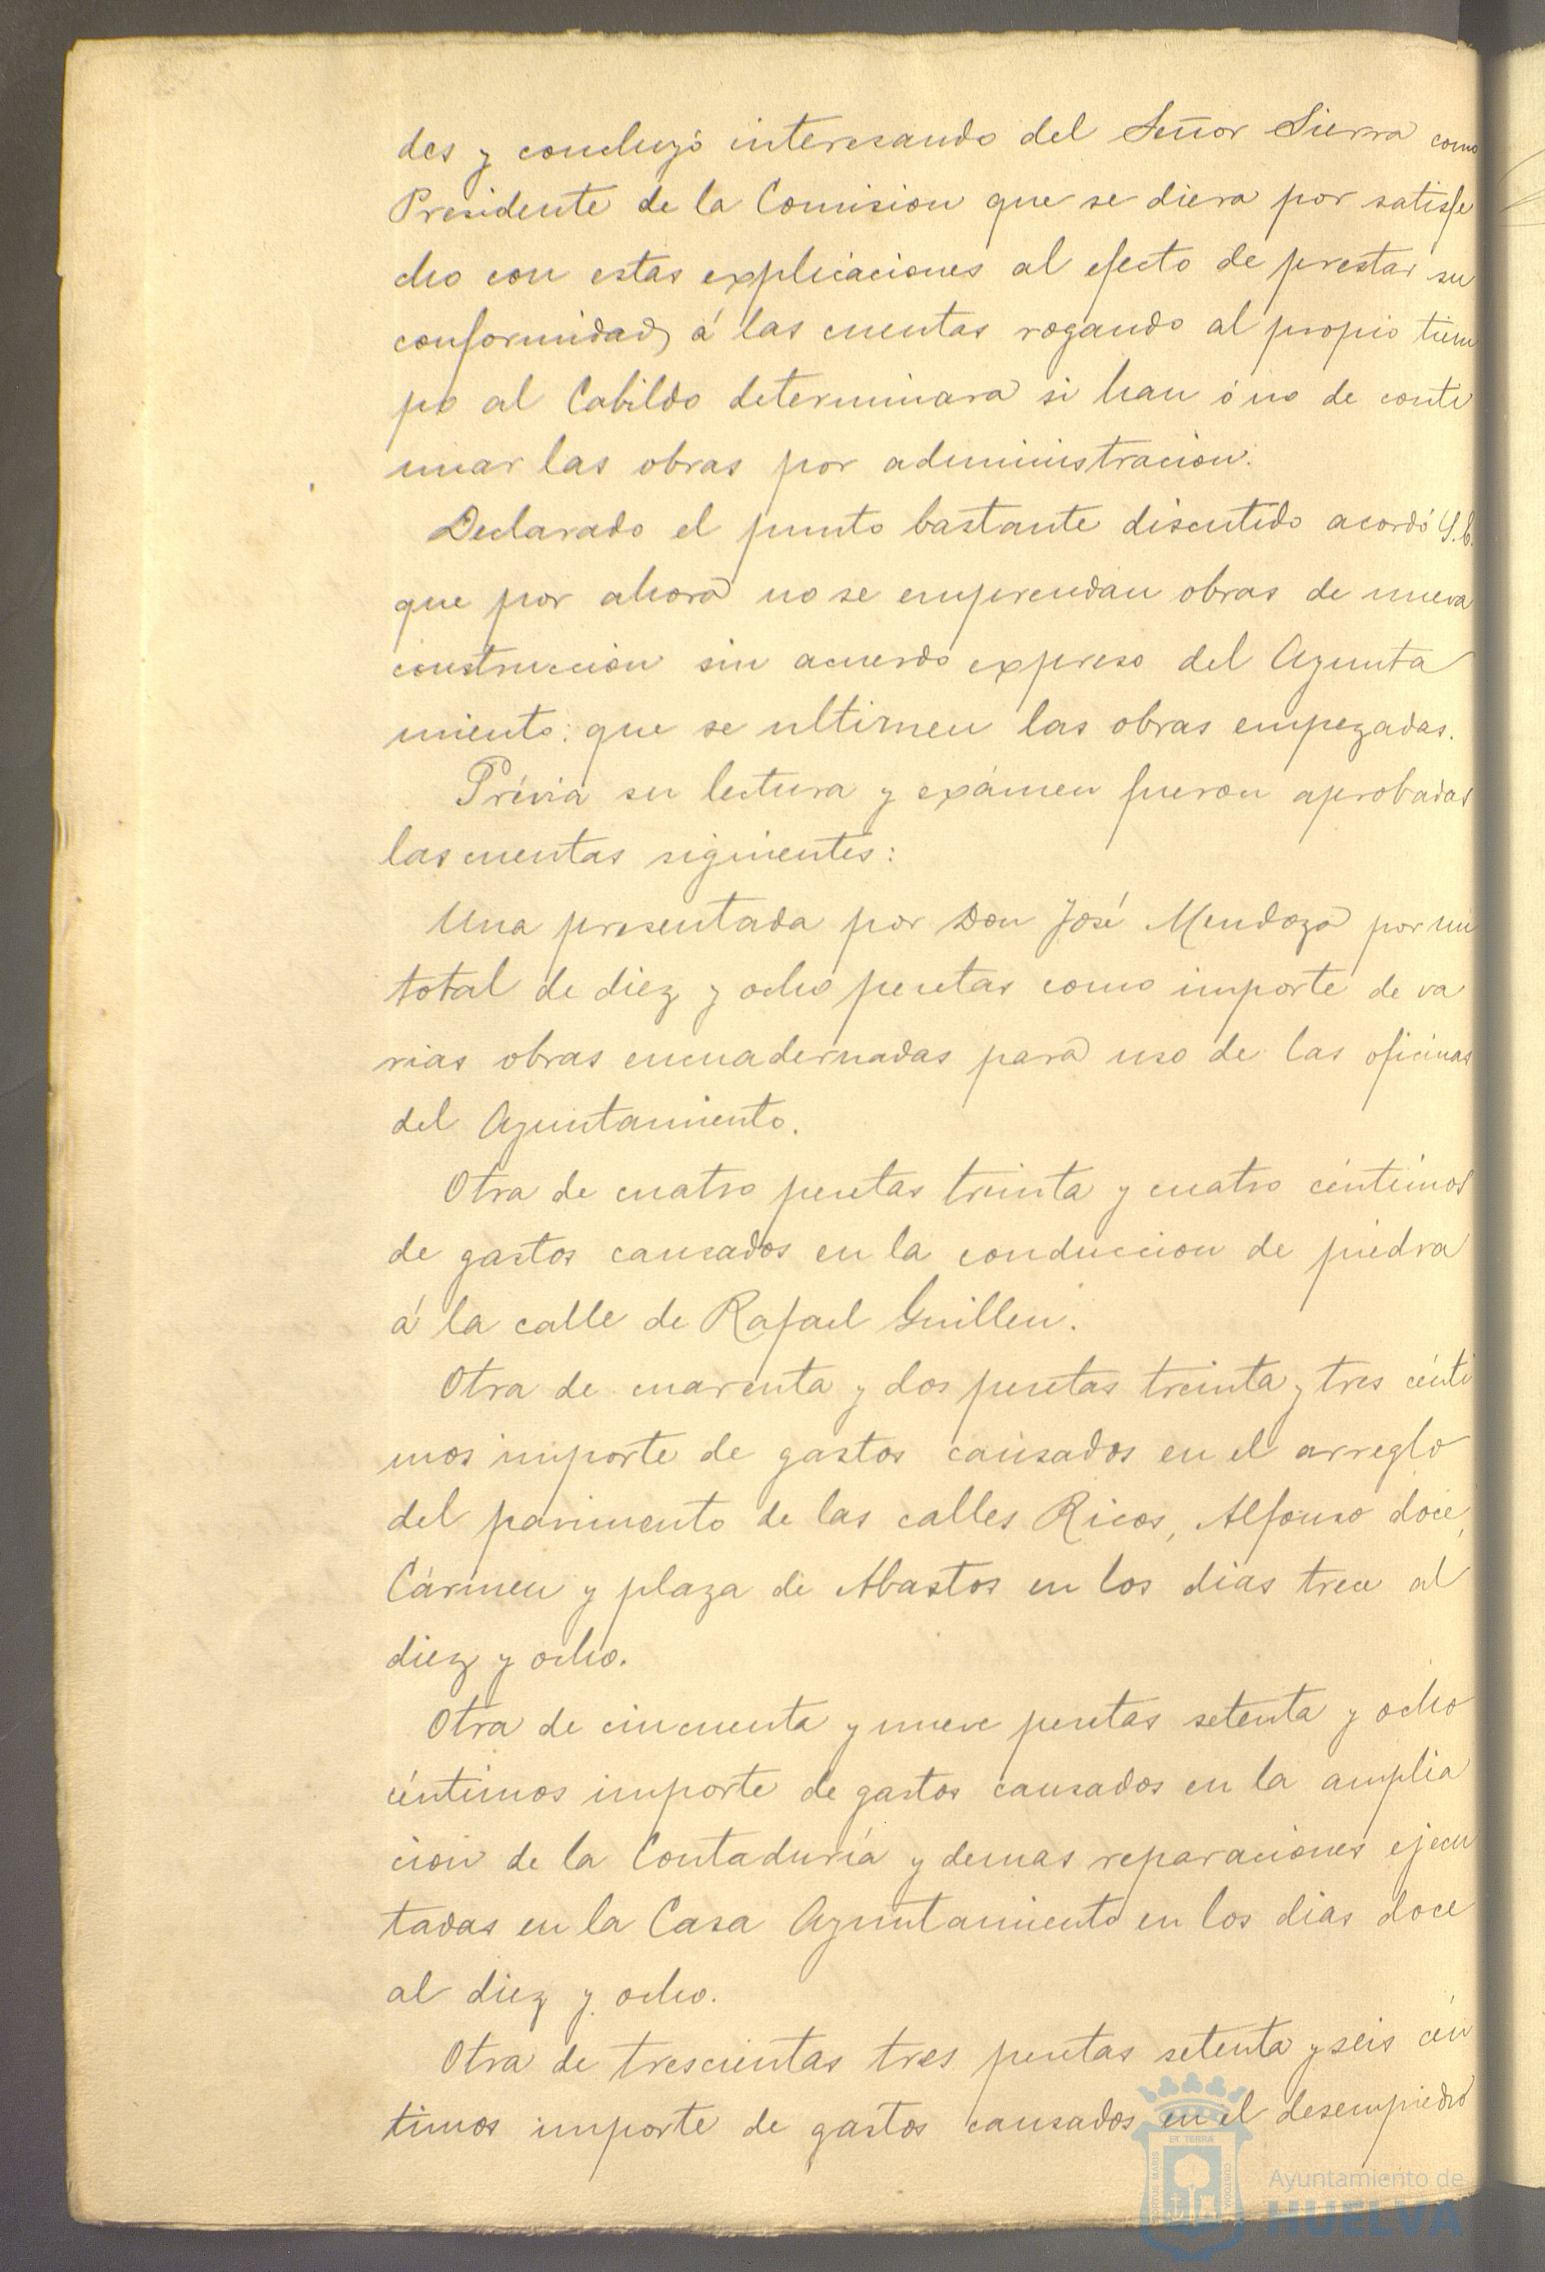 des y concluyó interesando del Señor Sierra como
Presidente de la Comision que se diera por satisfe
cho con estas explicaciones al efecto de prestar su
conformidad á las cuentas rogando al propio tiem
po al Cabildo determinara si han ó no de conti
nuar las obras por administracion.
Declarado el punto bastante discutido acordó S.E.
que por ahora no se emprendan obras de nueva
construccion sin acuerdo expreso del Ayunta
miento: que se ultimen las obras empezadas.
Prévia su lectura y exámen fueron aprobadas
las cuentas siguientes:
Una presentada por Don José Mendoza por un
total de diez y ocho pesetas como importe de va
rias obras encuadernadas para uso de las oficinas
del Ayuntamiento.
Otra de cuatro pesetas treinta y cuatro céntimos
de gastos causados en la conduccion de piedra
á la calle de Rafael Guillen.
Otra de cuarenta y dos pesetas treinta y tres cénti
mos importe de gastos causados en el arreglo
del pavimento de las calles Ricos, Alfonso doce,
Cármen y plaza de Abastos en los dias trece al
diez y ocho.
Otra de cincuenta y nueve pesetas setenta y ocho
céntimos importe de gastos causados en la amplia
cion de la Contaduría y demas reparaciones ejecu
tadas en la Casa Ayuntamiento en los dias doce
al diez y ocho.
Otra de trescientas tres pesetas setenta y seis cén
timos importe de gastos causados en el desempiedro
ET TERRA
PORTUS MARIS
CUSTODIA
Ayuntamiento de
HUELVA